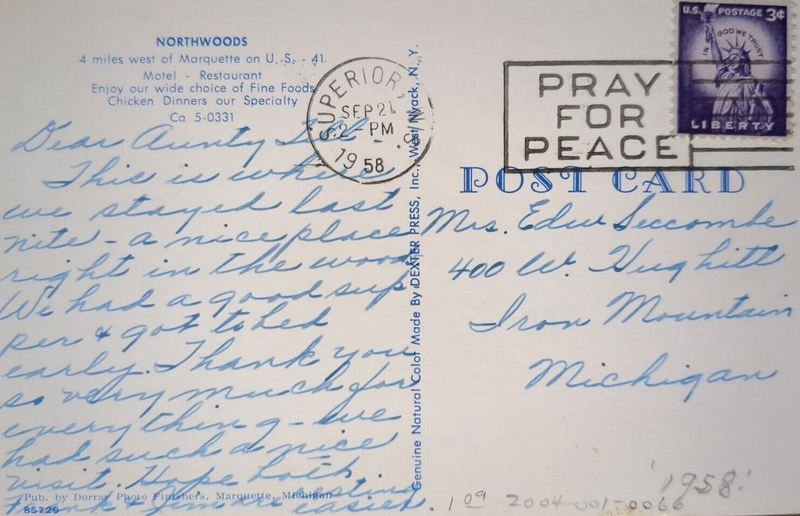 NORTHWOODS
4 miles west of Marquette on U. S. - 41
Motel - Restaurant
Enjoy our wide choice of Fine Foods
Chicken Dinners our Specialty
Ca 5-0331
Dear Aunty
This is where
we stayed last
nite - a nice place
right in the woods
We had a good sup
per & got to bed
early. Thank you
so very much for
everything - we
had such a nice
visit. Hope both
Frank & Jim are resting
easier.
Pub. by Dorray Photo Finishers, Marquette, Michigan
85729
Genuine Natural Color Made By DEXTER PRESS, Inc., West Nyack, N. Y.
SUPERIOR,
SEP 21
2 - PM
1958
PRAY
FOR
PEACE
U.S. POSTAGE 3¢
IN GOD WE TRUST
LIBERTY
POST CARD
Mrs. Edw Seccombe
400 W. Hughitt
Iron Mountain
Michigan
'1958'
109 2004-001-0066